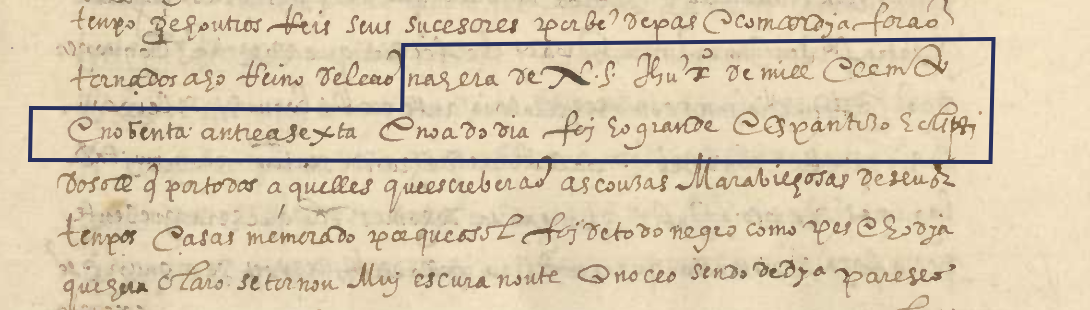 tenpo de houtros Reis seus sucesores por be' de pas E comcordja foraõ
tornados aho Reino de leaõ na hera de N. S. Jhu' X.º de mill E cem
E nobenta antrea sexta E noa do dia foj ho grande E Espantoso Eclipsi
do soll q̃ por todos a quelles que escreberaõ as couzas Marabilhosas de seus
tenpos E asas memorado por que ho soll foj de todo negro como pes E ho dja
que hera Claro se tornou Muj escura noute E no ceo sendo de dja pareseo